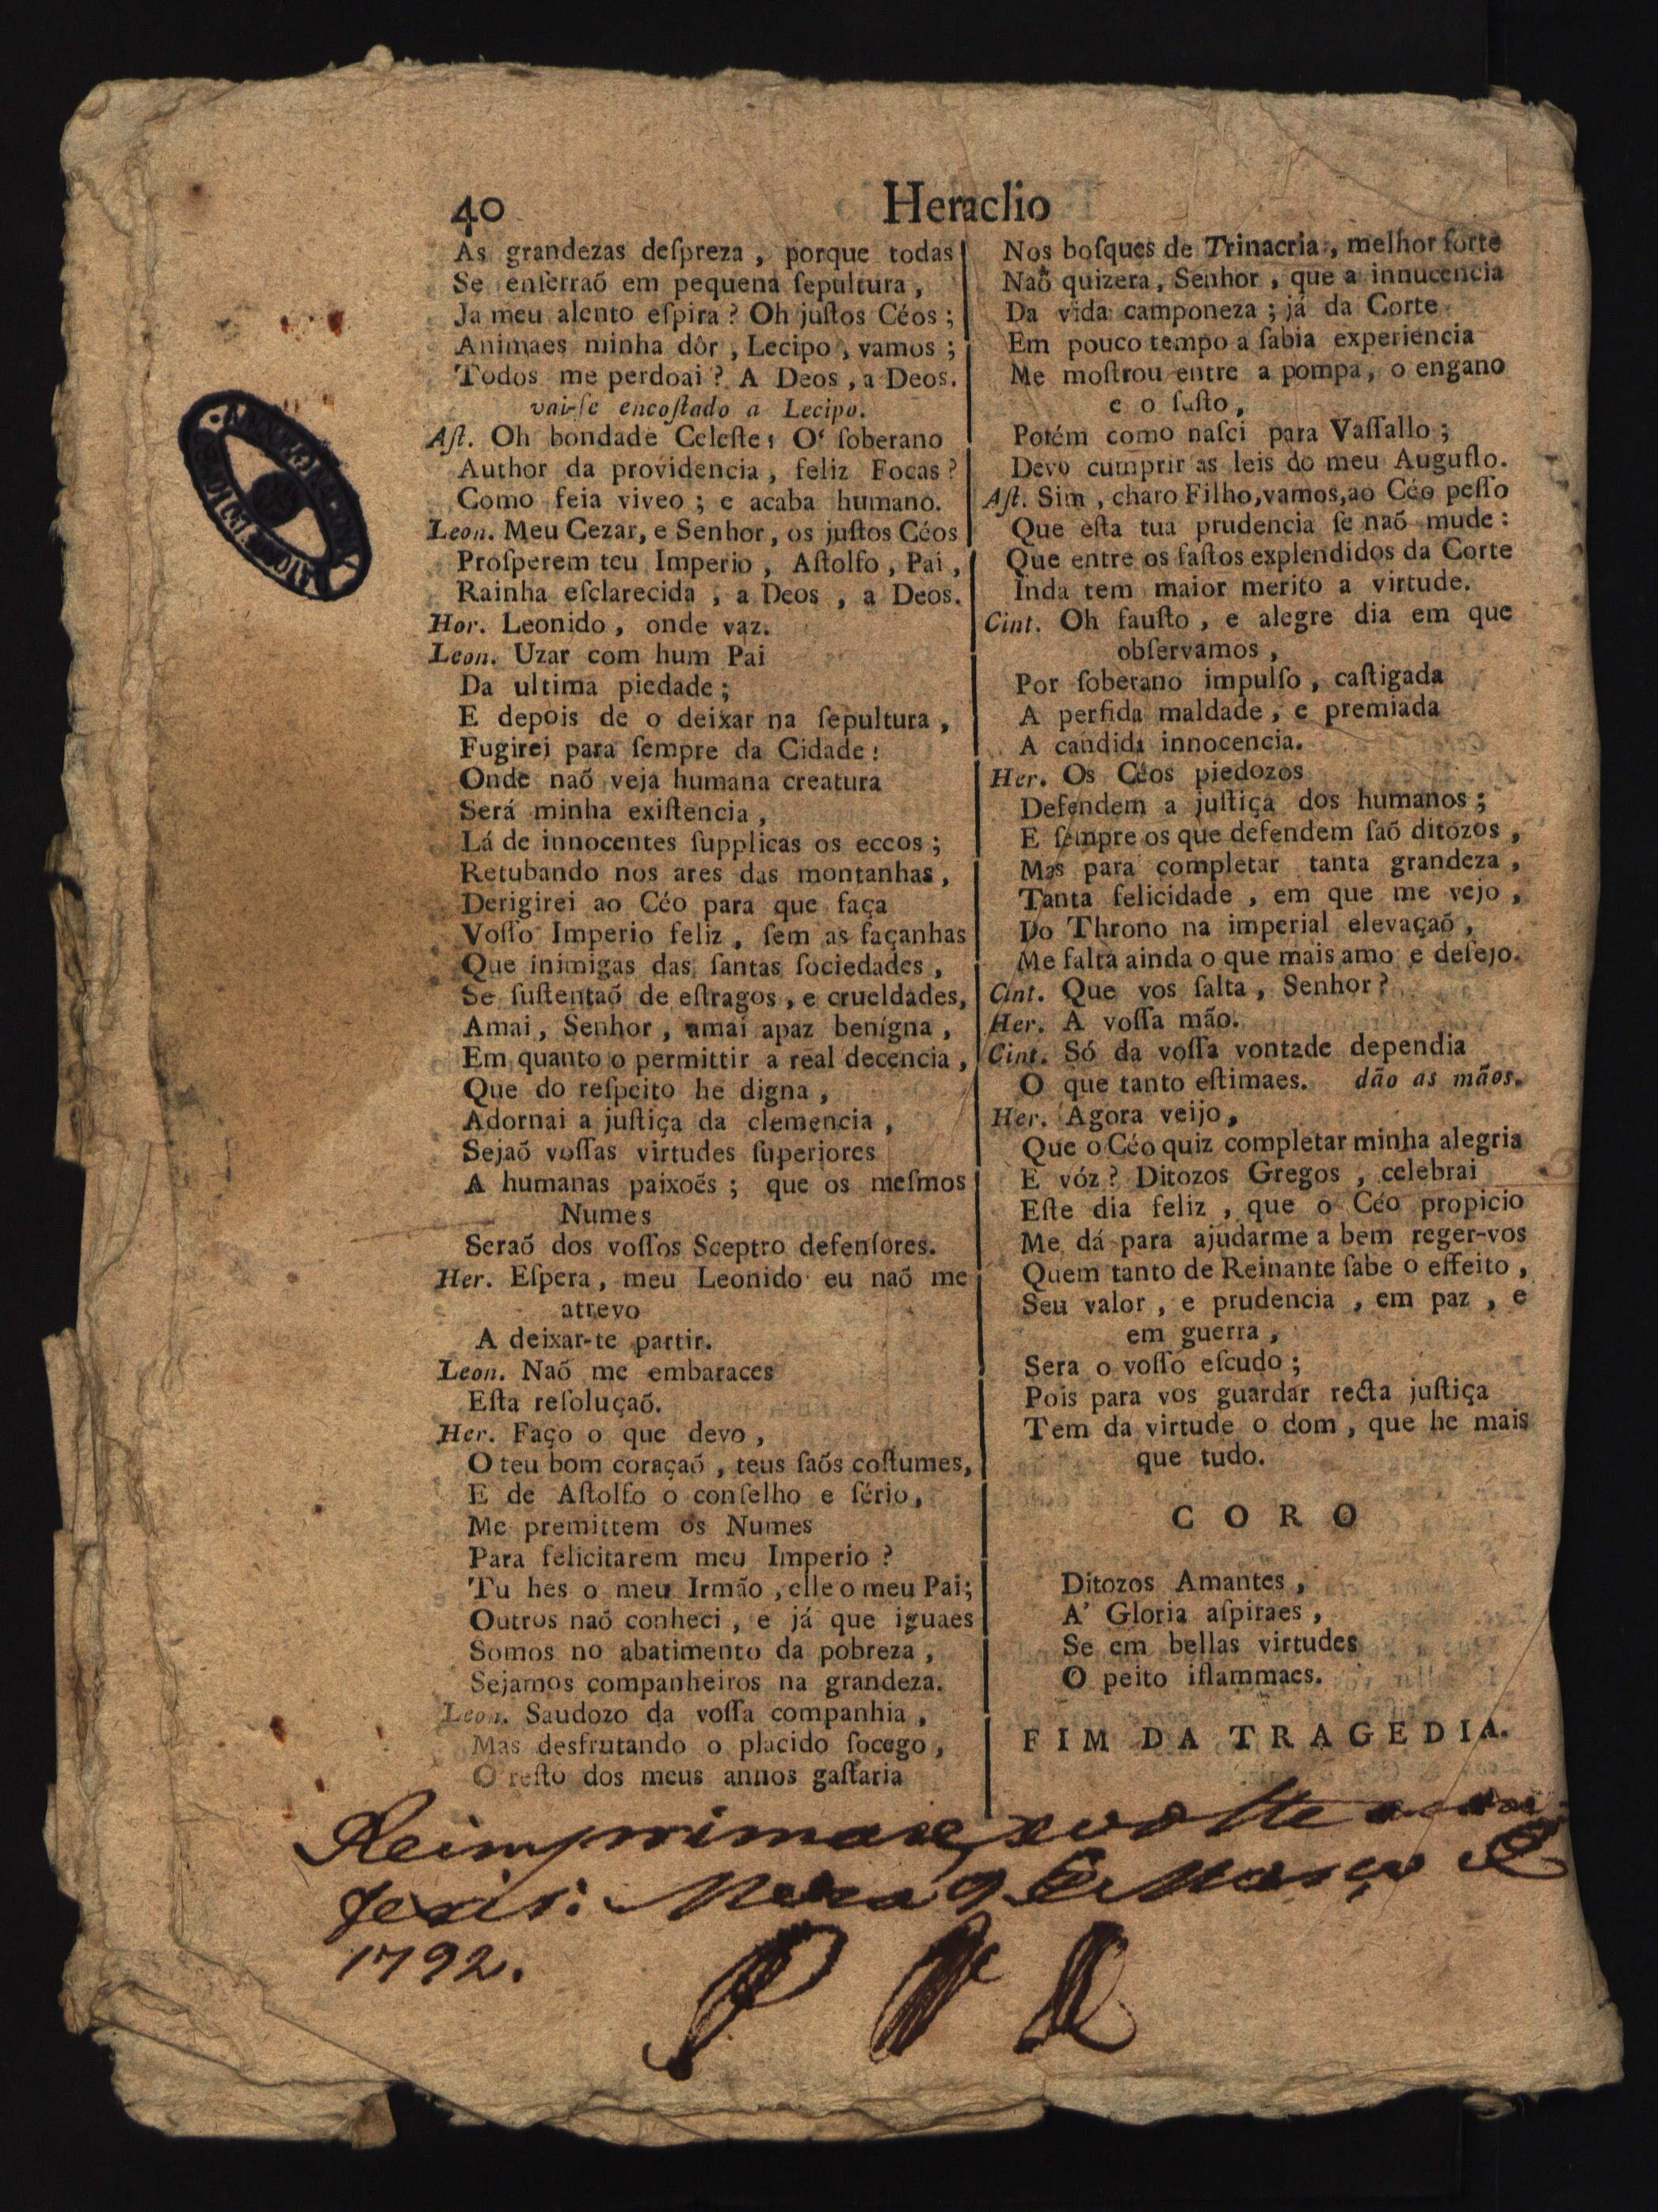 40
Heraclio
As grandezas deſpreza , porque todas
Se enſerraõ em pequena ſepultura ,
Ja meu alento eſpira ? Oh juſtos Céos ;
Animaes minha dôr , Lecipo , vamos ;
Todos me perdoai ? A Deos , a Deos.
vai-ſe encoſtado a Lecipo.
Aſt. Oh bondade Celeſte ! O' ſoberano
Author da providencia , feliz Focas ?
Como feia viveo ; e acaba humano.
Leon. Meu Cezar, e Senhor , os juſtos Céos
Proſperem teu Imperio , Aſtolfo , Pai ,
Rainha eſclarecida , a Deos , a Deos.
Hor. Leonido , onde vaz.
Leon. Uzar com hum Pai
Da ultima piedade ;
E depois de o deixar na ſepultura ,
Fugirei para ſempre da Cidade :
Onde naõ veja humana creatura
Será minha exiſtencia ,
Lá de innocentes ſupplicas os eccos ;
Retubando nos ares das montanhas ,
Derigirei ao Céo para que faça
Voſſo Imperio feliz , ſem as façanhas
Que inimigas das ſantas ſociedades ,
Se ſuſtentaõ de eſtragos , e crueldades,
Amai , Senhor , amai apaz benigna ,
Em quanto o permittir a real decencia ,
Que do reſpeito he digna ,
Adornai a juſtiça da clemencia ,
Sejaõ voſſas virtudes ſuperiores
A humanas paixoẽs ; que os meſmos
Numes
Seraõ dos voſſos Sceptro defenſores.
Her. Eſpera , meu Leonido eu naõ me
atrevo
A deixar-te partir.
Leon. Naõ me embaraces
Eſta reſoluçaõ.
Her. Faço o que devo ,
O teu bom coraçaõ , teus ſaõs coſtumes,
E de Aſtolfo o conſelho e ſério ,
Me premittem os Numes
Para felicitarem meu Imperio ?
Tu hes o meu Irmão , elle o meu Pai;
Outros naõ conheci , e já que iguaes
Somos no abatimento da pobreza ,
Sejamos companheiros na grandeza.
Leon. Saudozo da voſſa companhia ,
Mas desfrutando o placido ſocego ,
O reſto dos meus annos gaſtaria
Nos boſques de Trinacria , melhor ſorte
Naõ quizera , Senhor , que a innucencia
Da vida camponeza ; já da Corte
Em pouco tempo a ſabia experiencia
Me moſtrou entre a pompa , o engano
e o ſuſto ,
Potém como naſci para Vaſſallo ;
Devo cumprir as leis do meu Auguſto.
Aſt. Sim , charo Filho, vamos, ao Céo peſſo
Que eſta tua prudencia ſe naõ mude :
Que entre os faſtos explendidos da Corte
Inda tem maior merito a virtude.
Cint. Oh fauſto , e alegre dia em que
obſervamos ,
Por ſoberano impulſo , caſtigada
A perfida maldade , e premiada
A candida innocencia.
Her. Os Céos piedozos
Defendem a juſtiça dos humanos ;
E ſempre os que defendem ſaõ ditozos ,
Mas para completar tanta grandeza ,
Tanta felicidade , em que me vejo ,
Do Throno na imperial elevaçaõ ,
Me falta ainda o que mais amo e deſejo.
Cint. Que vos falta , Senhor ?
Her. A voſſa mão.
Cint. Só da voſſa vontade dependia
O que tanto eſtimaes. dão as mãos.
Her. Agora veijo ,
Que o Céo quiz completar minha alegria
E vóz ? Ditozos Gregos , celebrai
Eſte dia feliz , que o Céo propicio
Me dá para ajudarme a bem reger-vos
Quem tanto de Reinante ſabe o effeito ,
Seu valor , e prudencia , em paz , e
em guerra ,
Sera o voſſo eſcudo ;
Pois para vos guardar recta juſtiça
Tem da virtude o dom , que he mais
que tudo.
CORO
Ditozos Amantes ,
A' Gloria aſpiraes ,
Se em bellas virtudes
O peito iflammaes.
FIM DA TRAGEDIA.
Reimprimase, e volte a con
ferir. Meza 9 de Março de
1792.